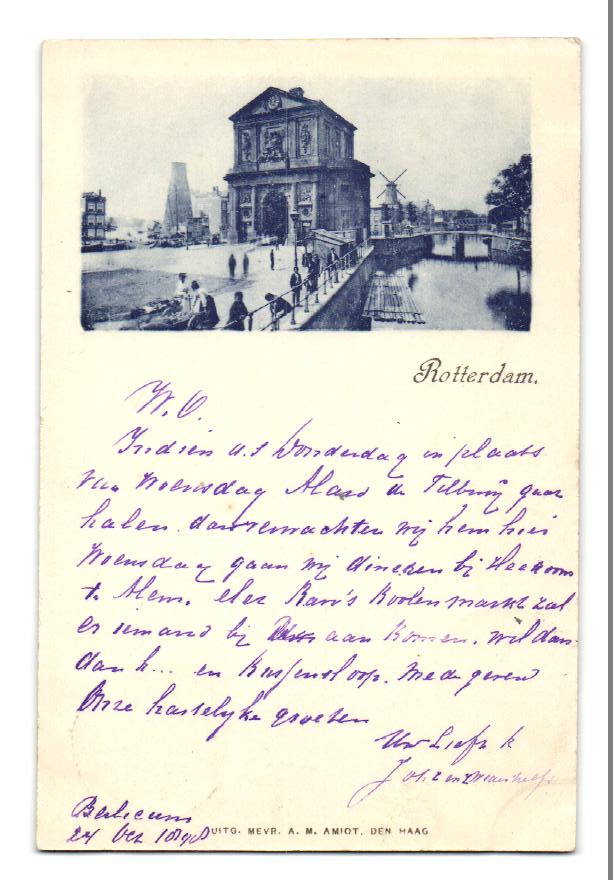 Rotterdam.
W. O.
Indien a.s Donderdag in plaats
van Woensdag in Tilburg gaar
halen dan verwachten wij hem hier
Woensdag gaan wij dineren bij Heeroom
te Alem. markt zal
er iemand bij aan komen. wil dan
dan k... en mede geven
Onze hartelyke groeten
Uw Liefh
Joh
Berlicum
24 Oct 1898
UITG. MEVR. A. M. AMIOT. DEN HAAG